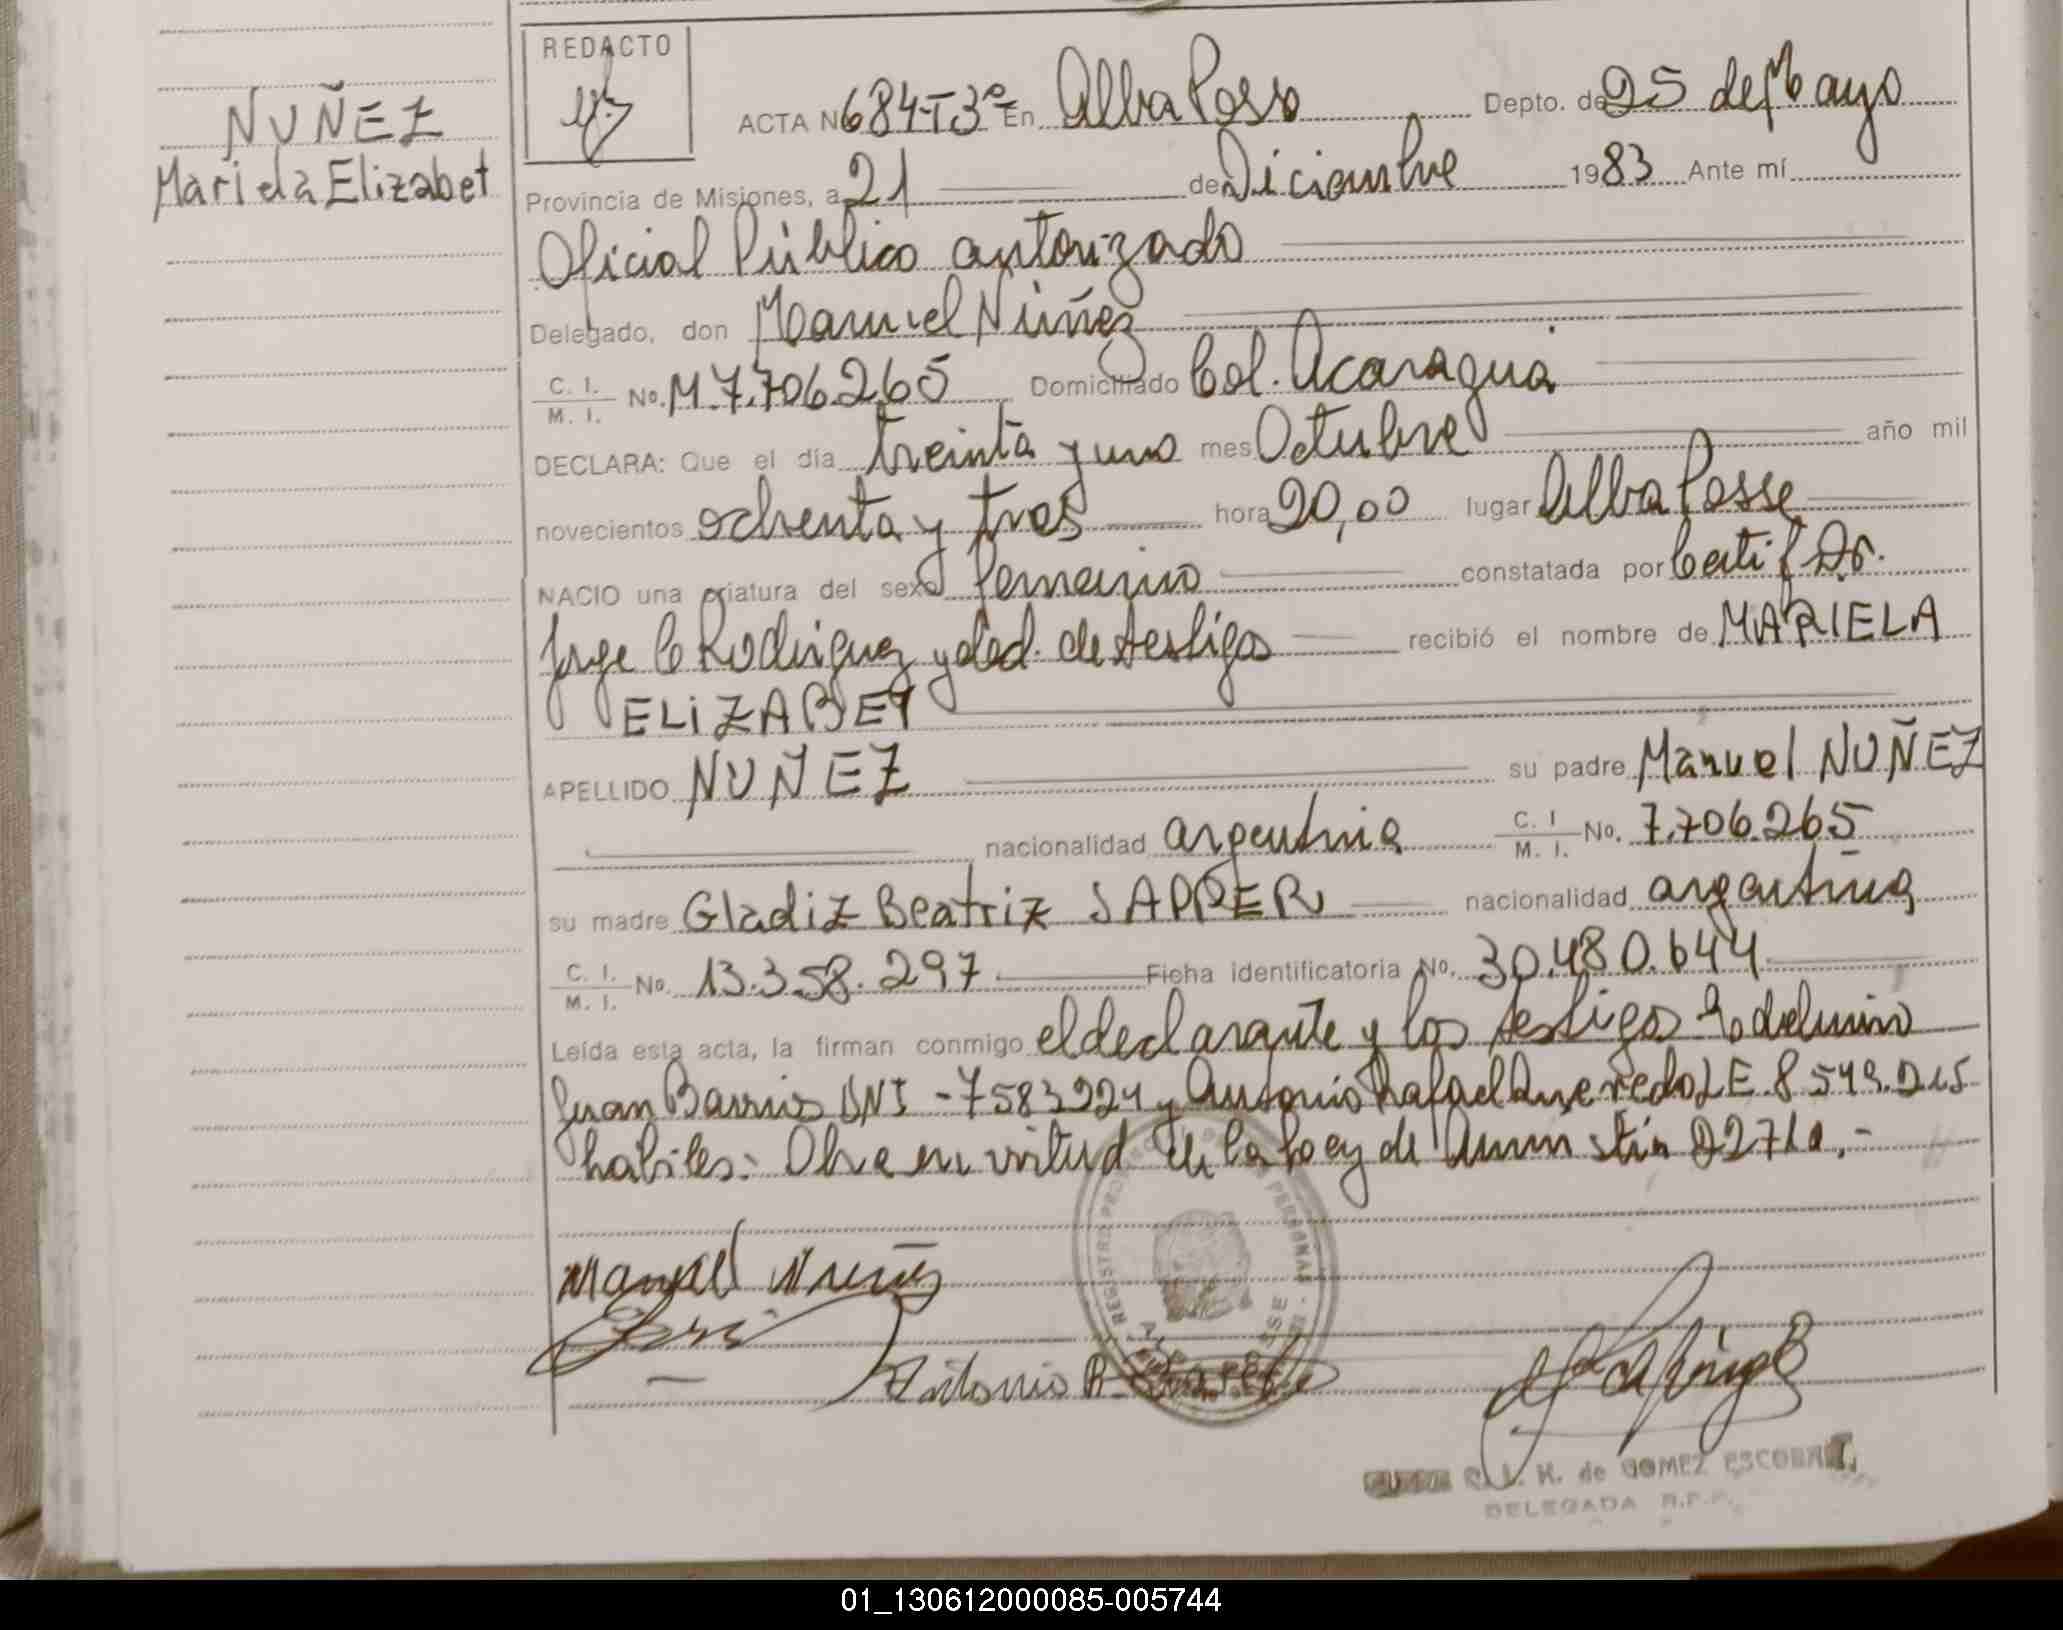 NUÑEZ
Mariela Elizabet
REDACTO
ACTA Nº 684-T3º En Alba Posse Depto. de 25 de Mayo
Provincia de Misiones, a 21 de Diciembre 1983 Ante mí
Oficial Público autorizado
Delegado, don Manuel Núñez
C. I. M. I. No. M.7.706.265 Domiciliado Col. Acaragua
DECLARA: Que el día treinta y uno mes Octubre año mil
novecientos ochenta y tres hora 20,00 lugar Alba Posse
NACIO una criatura del sexo femenino constatada por Certif Dr.
Jorge C Rodriguez y ded. de testigos recibió el nombre de MARIELA
ELIZABET
APELLIDO NUÑEZ su padre Manuel NUÑEZ
nacionalidad argentina C. I M. I. No. 7.706.265
su madre Gladiz Beatriz SAPPER nacionalidad argentina
C. I. M. I. No. 13.358.297 Ficha identificatoria No. 30.480.644
Leída esta acta, la firman conmigo el declarante y los testigos
Juan Barrios DNI - 7583924 y Antonio Rafael LE. 8 549.215
habiles. en virtud de la Ley de 22710.-
Manuel Nuñez
Antonio R.
REGISTRO PERSONAS
de GOMEZ ESCOBAR
DELEGADA R.P.P.
01_130612000085-005744